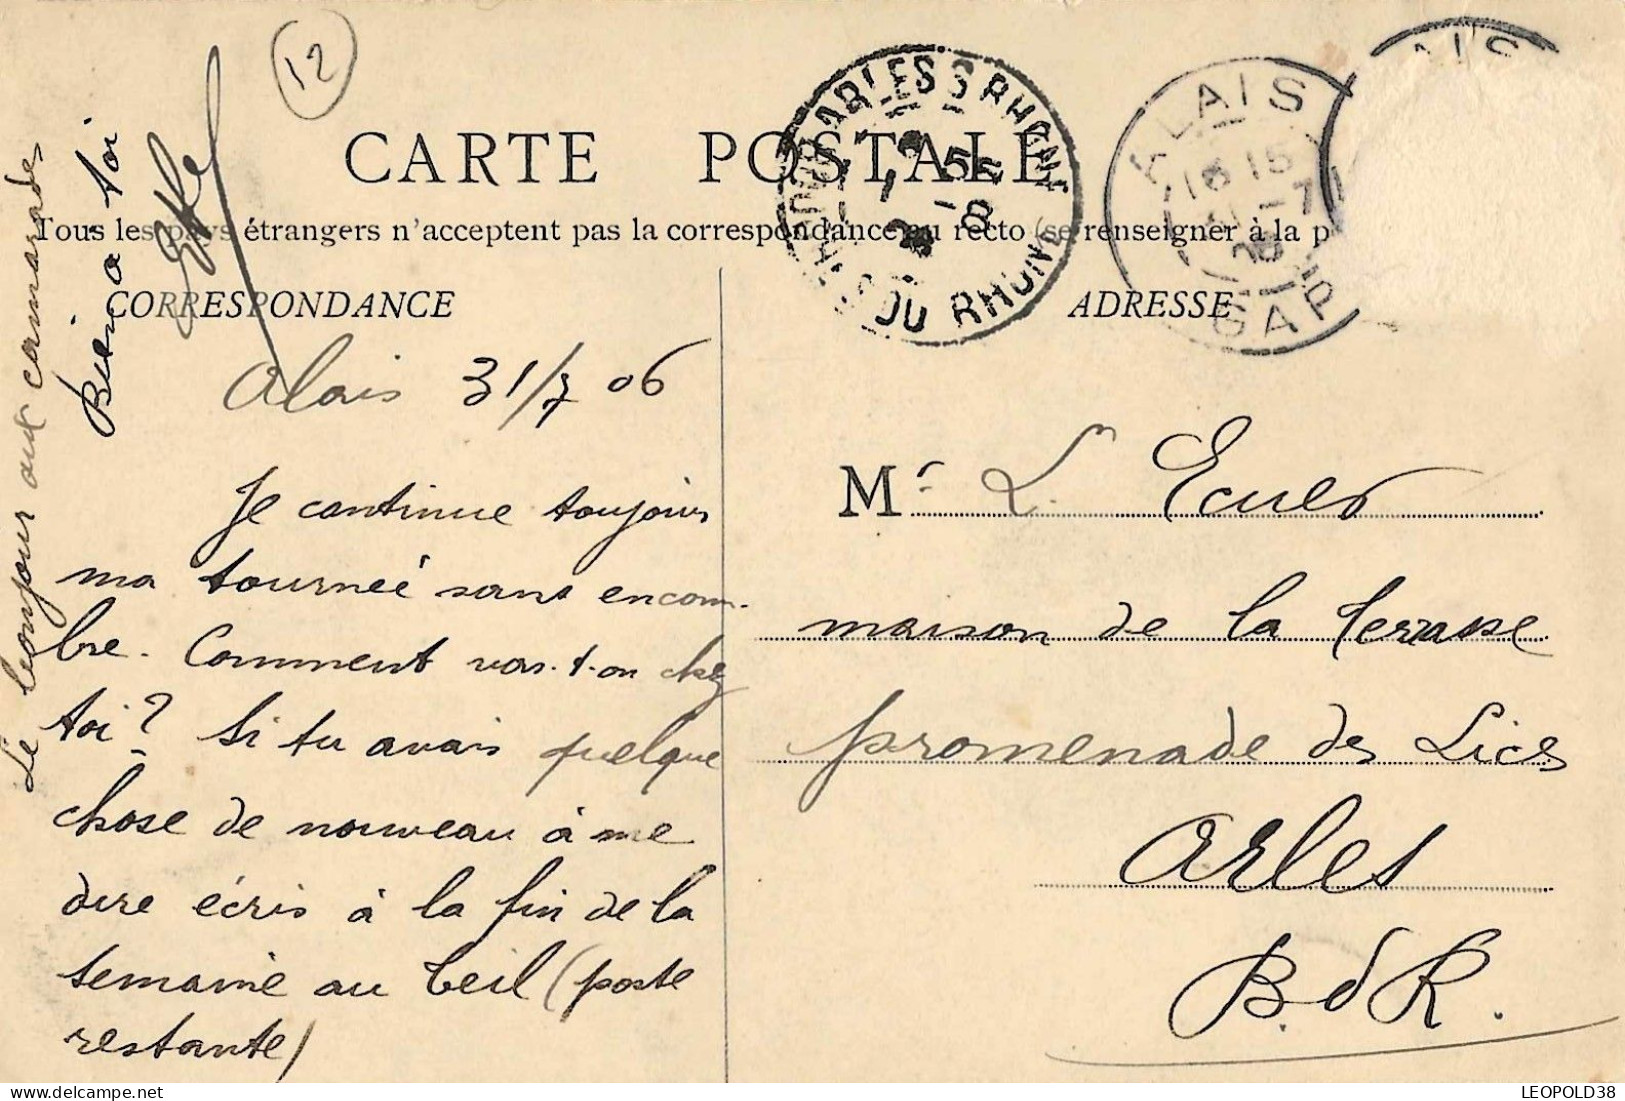 12
CARTE POSTALE
Tous les pays étrangers n'acceptent pas la correspondance au recto (se renseigner à la p
CORRESPONDANCE
ADRESSE
ARLES S RHONE
BOUCHES DU RHONE
1 -8
ALAIS
18 15
31 -7
06
GARD
AIS
Alais 31/7 06
Je continue toujours
ma tourneé sans encom-
bre. Comment vas-t-on chez
toi? Si tu avais quelque
chose de nouveau à me
dire écris à la fin de la
semaine au Teil (poste
restante)
Le bonjour aux camarades
Bien a toi
Mr. L. Ecuer
maison de la Terrasse
promenade des Lices
Arles
B. d R.
LEOPOLD38